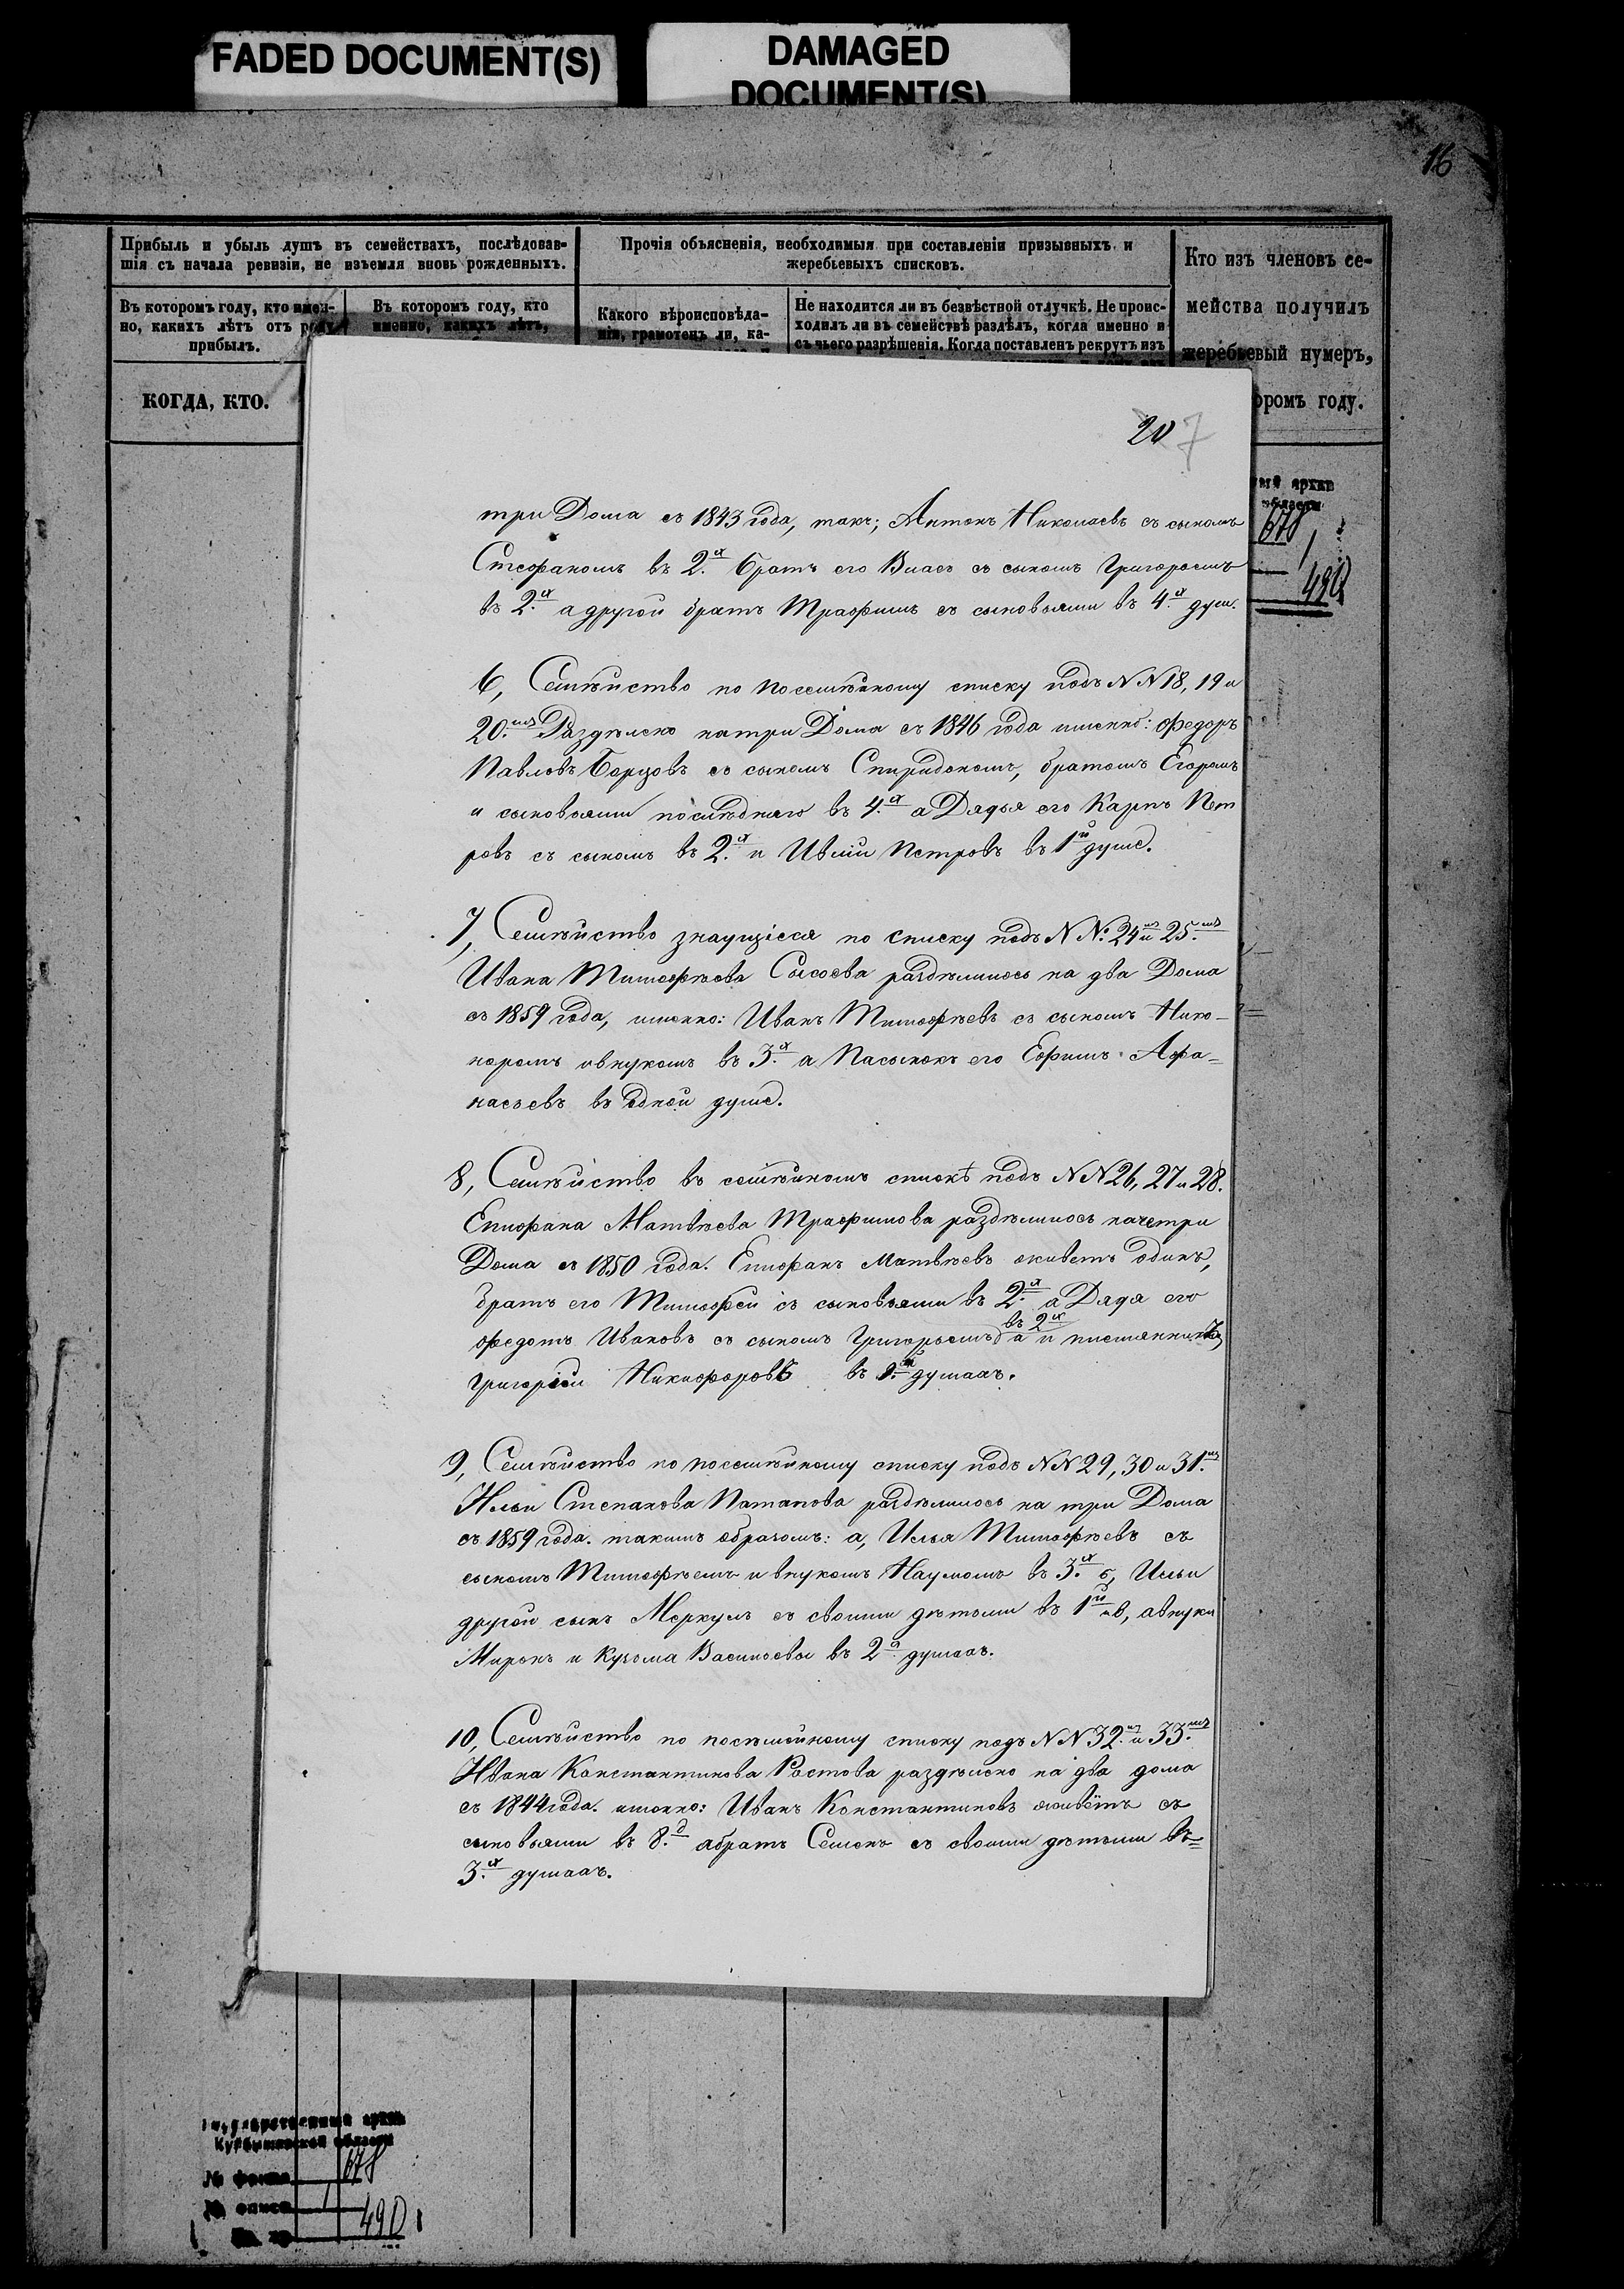 FADED DOCUMENT(S)
DAMAGED
DOCUMENT(S)
16
Прибыль и убыль душъ въ семействахъ, послѣдовав-
шія съ начала ревизіи, не изъемля вновь рожденныхъ.
Въ которомъ году, кто имен-
но, какихъ лѣтъ отъ роду
прибылъ.
Въ которомъ году, кто
именно, какихъ лѣтъ,
КОГДА, КТО.
Прочія объясненія, необходимыя при составленіи призывныхъ и
жеребьевыхъ списковъ.
Какого вѣроисповѣда-
нія, грамотенъ ли, ка-
Не находится ли въ безвѣстной отлучкѣ. Не проис-
ходилъ ли въ семействѣ раздѣлъ, когда именно и
съ чьего разрѣшенія. Когда поставленъ рекрутъ изъ
Кто изъ членовъ се-
мейства получилъ
жеребьевый нумеръ,
оромъ году.
207
три Дома съ 1843 года, такъ; Антонъ Николаевъ съ сыномъ
Стефаномъ въ 2.х братъ его Власъ съ сыномъ Григорьемъ
въ 2.х а другой братъ Трафимъ съ сыновьями въ 4.х душ.
6, Семѣйство по посемѣйному списку подъ NN 18, 19 и
20.мъ Раздѣлено на три Дома съ 1846 года именно: Федоръ
Павловъ Борцовъ со сыномъ Спиридономъ, братомъ Егоромъ
и сыновьями послѣдняго въ 4.х а Дядья его Карпъ Пет
ровъ съ сыномъ въ 2.х и Ивлій Петровъ въ 1й душѣ.
7, Семѣйство значущіеся по списку подъ N№ 24мъ и 25.мъ
Ивана Тимофѣева Сысоева раздѣлилось на два Дома
съ 1859 года, именно: Иванъ Тимофѣевъ съ сыномъ Нико-
норомъ и внукомъ въ 3.х а Пасынокъ его Ефимъ Афа=
насьевъ въ одной душѣ.
8, Семѣйство въ семѣйномъ спискѣ подъ NN 26, 27 и 28.
Епифана Матвѣева Трафимова раздѣлилось на четри
Дома съ 1850 года. Епифанъ Матвѣевъ живетъ одинъ,
братъ его Тимофей съ сыновьями въ 2.х а Дядя его
въ 2х
Федотъ Ивановъ съ сыномъ Григорьемъ а и племянникъ
Григорій Никифоровъ въ 1.й душахъ.
9, Семѣйство по посемѣйному списку подъ NN 29, 30 и 31.мъ
Ильи Степанова Патапова раздѣлилось на три Дома
съ 1859 года. такимъ образомъ: а, Илья Тимофѣевъ съ
сыномъ Тимофѣемъ и внукомъ Наумомъ въ 3.х б, Ильи
другой сынъ Меркулъ съ своими дѣтьми въ 1й и в, а внуки
Миронъ и Кузьма Васильевы въ 2х душахъ.
10, Семѣйство по посѣмейному списку подъ NN 32.мъ и 33.мъ
Ивана Константинова Ростова раздѣлено на два дома
съ 1844 года. именно: Иванъ Константиновъ живётъ съ
сыновьями въ 8. а братъ Семенъ съ своими дѣтьми въ=
3.х душахъ.
678
1
490
Государственный архив
Куйбышевской области
№ фонда 678
№ описи 1
490